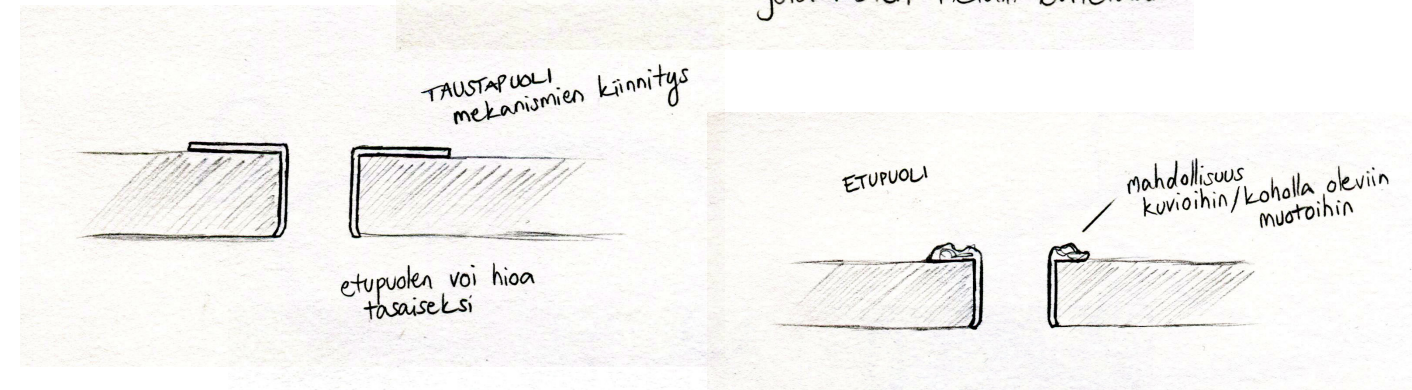 TAUSTAPUOLI
mekanismien kiinnitys
etupuolen voi hioa
tasaiseksi
ETUPUOLI
mahdollisuus
kuvioihin/koholla oleviin
muotoihin